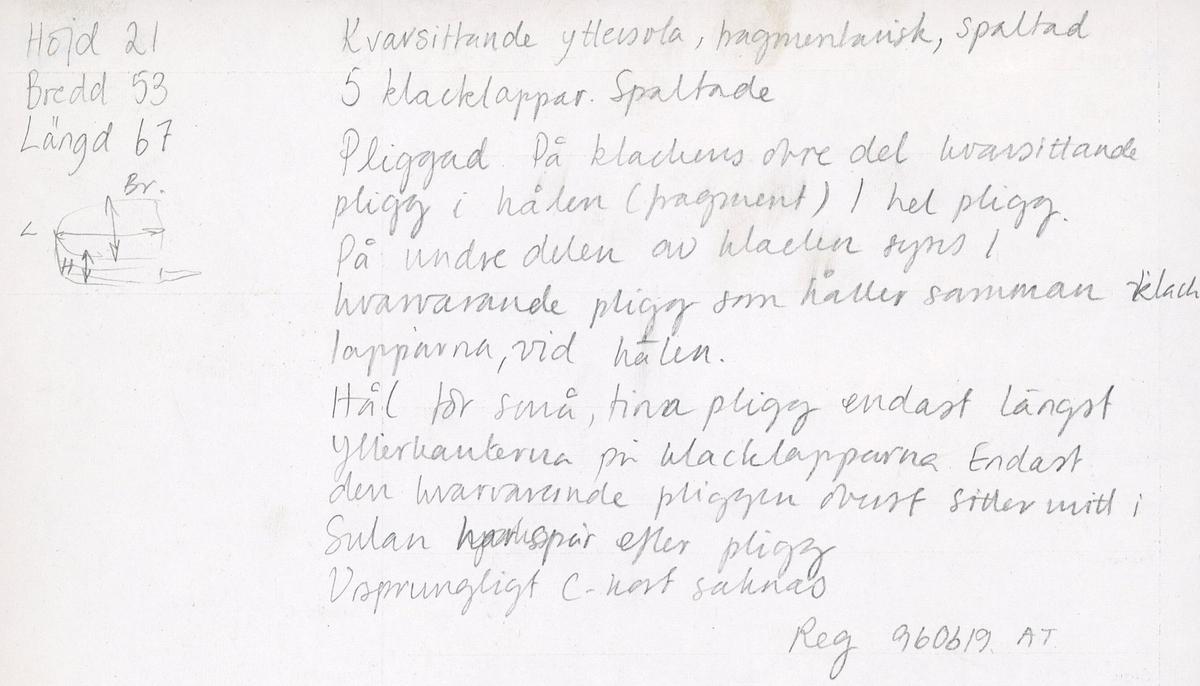 Höjd 21
Bredd 53
Längd 67
Br.
L
H
Kvarsittande yttersola, fragmentarisk, spaltad
5 klacklappar. Spaltade
Pliggad På klackens övre del kvarsittande
pligg i hålen (fragment) 1 hel pligg.
På undre delen av klacken syns 1
kvarvarande pligg som håller samman klack
lapparna, vid hålen.
Hål för små, tina pligg endast längst
Ytterkanterna på klacklapparna. Endast
den kvarvarande pliggen överst sitter mitt i
Sulan efter pligg
Ursprungligt C-kort saknas
Reg 960619. AT